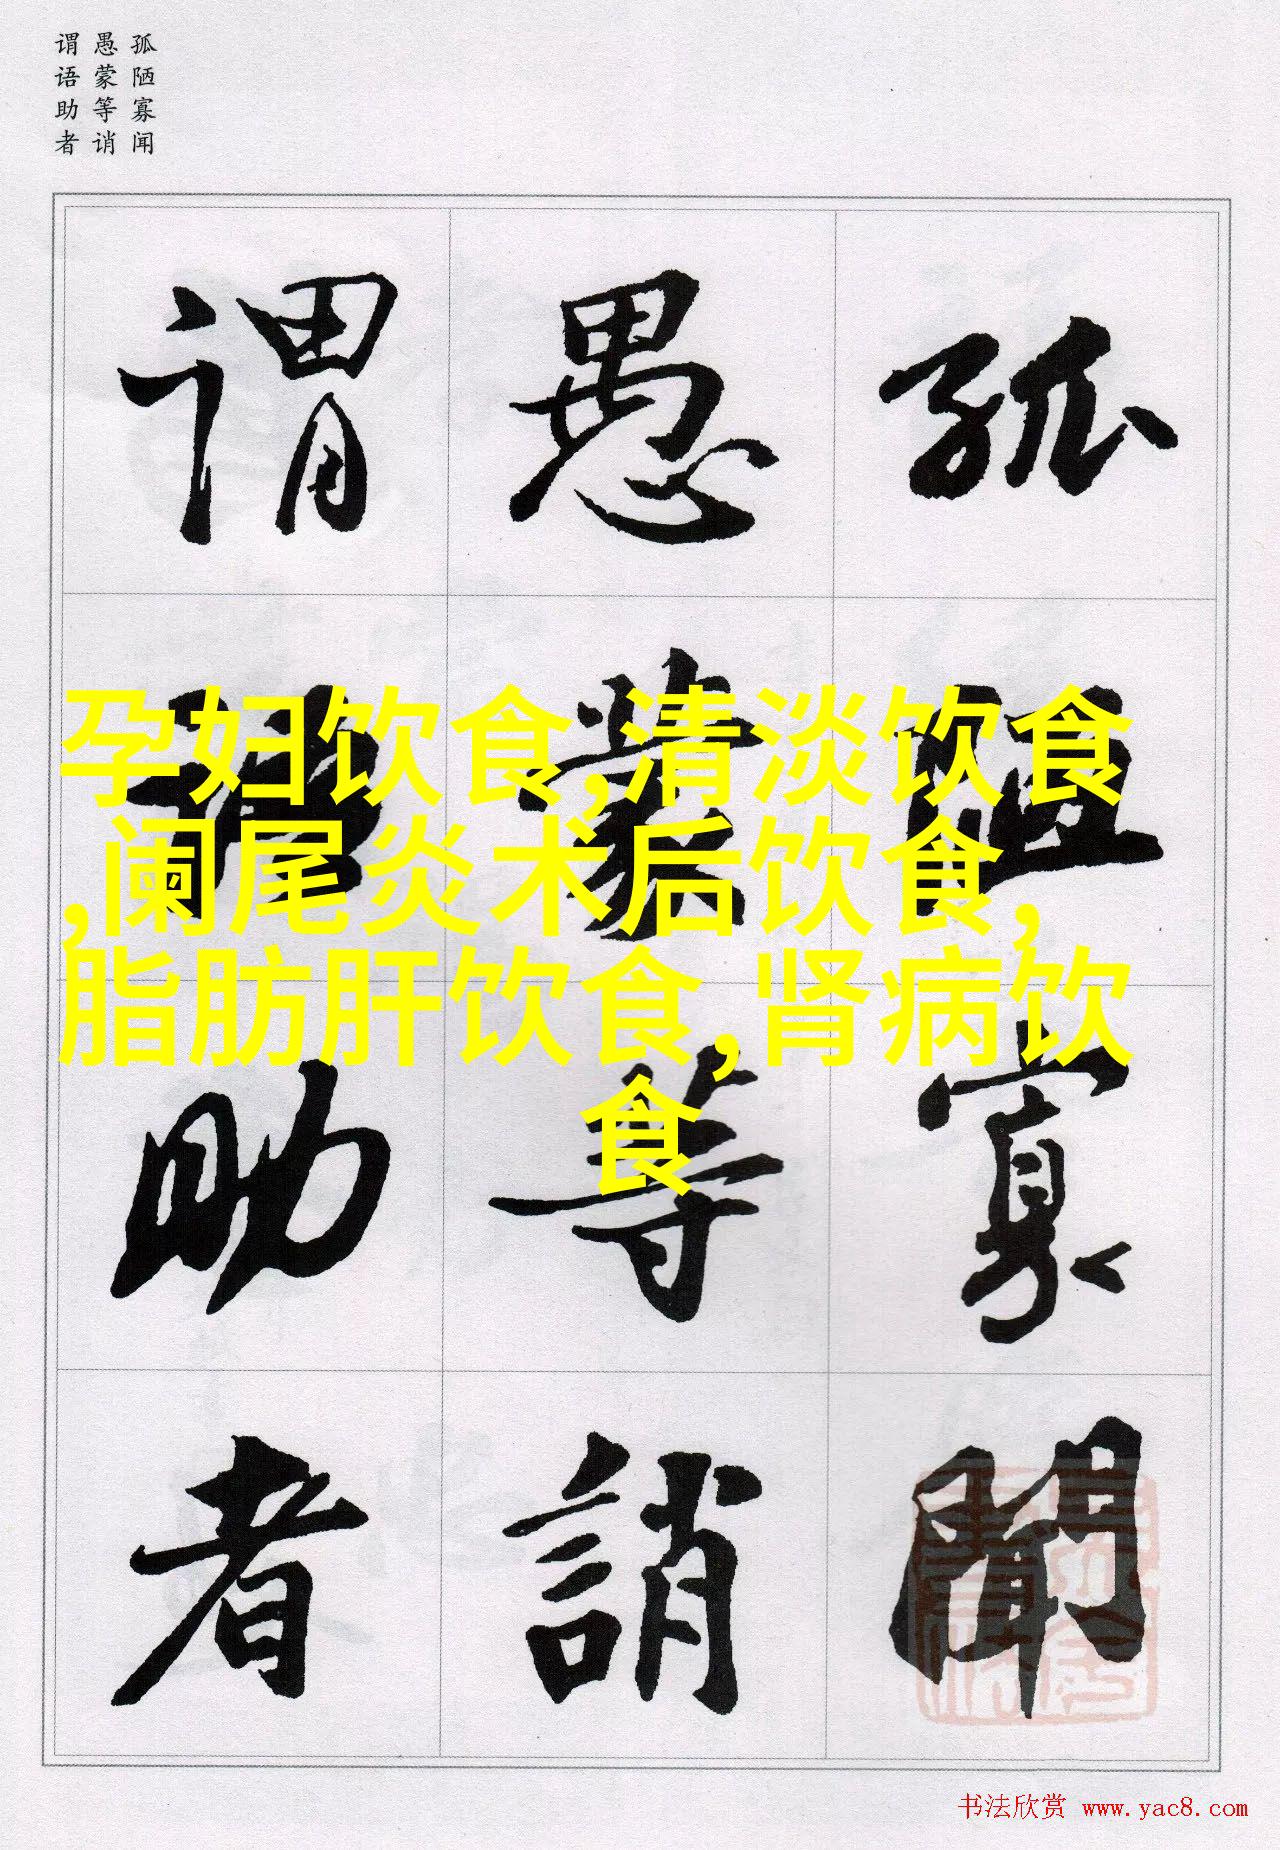 孤陋寡闻
愚蒙等诮
谓语助者
孤陋寡聞
愚蒙等誚
谓语助者
孕妇饮食,清淡饮食
,阑尾炎术后饮食,
脂肪肝饮食,肾病饮
食
书法欣赏 www.yac8.com